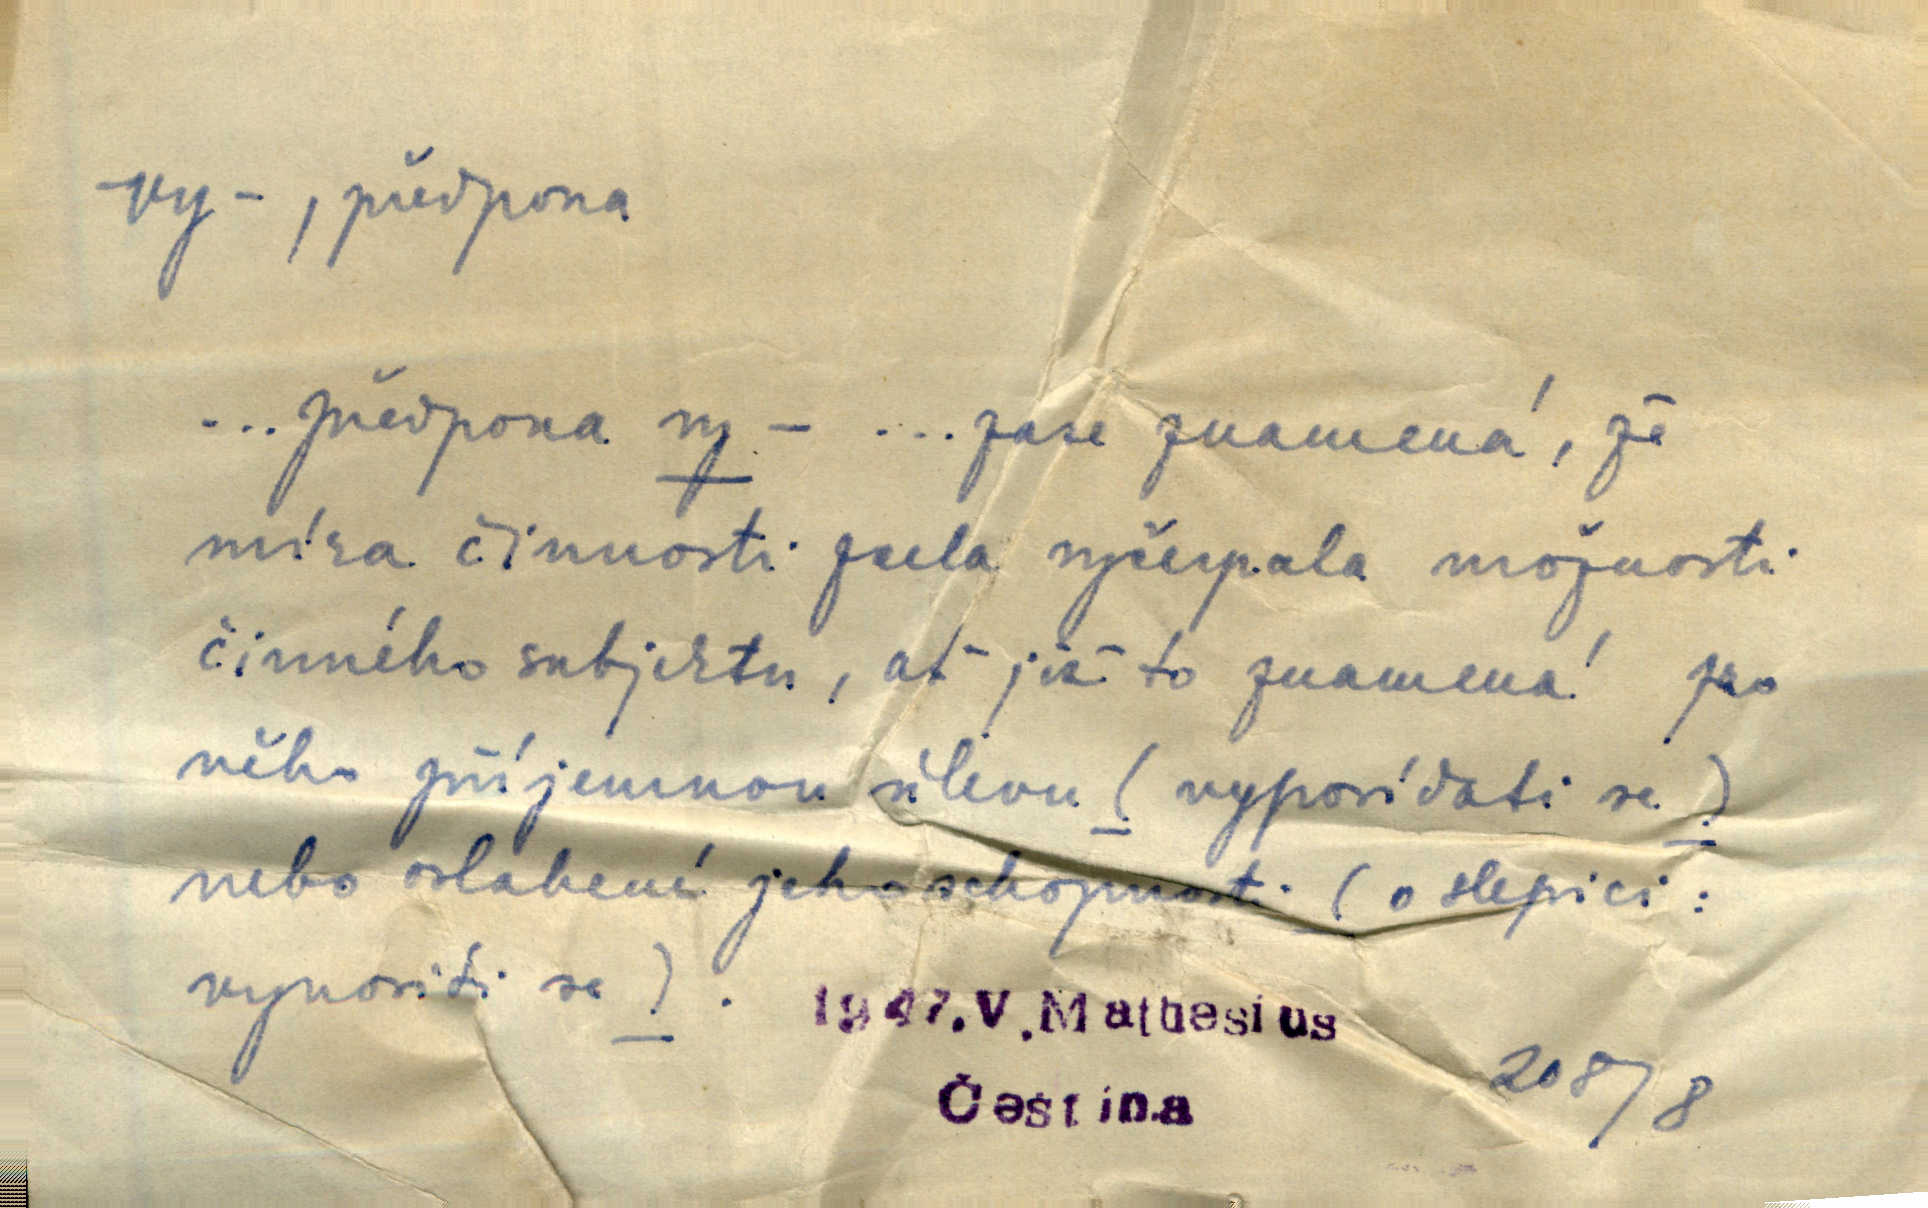 -vy-, předpona
...předpona vy- ...zase znamená, že
míra činnosti zcela vyčerpala možnosti
činného subjektu, ať již to znamená pro
něho příjemnou úlevu (vypovídati se)
nebo oslabení jeho schopnosti (o slepici:
vynositi se).
1947. V. Mathesius
Čeština
208/8